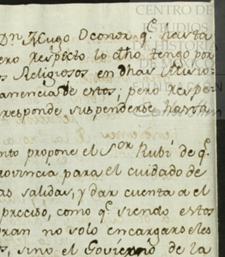 CENTRO DE
ESTUDIOS
DE HISTORIA
Dn. Hugo Oconor q.e hasta
ero respecto lo dho tengo por
os Religiosos en dhas Misio
anencia de estos; pero respe
responde suspenderse hasta
nto propone el Sor Rubí de q.
rovincia para el cuidado de
as salidas, y dar cuenta a el
preciso, como q.e siendo estos
ran no solo encargarseles
s, sino el Govierno de la